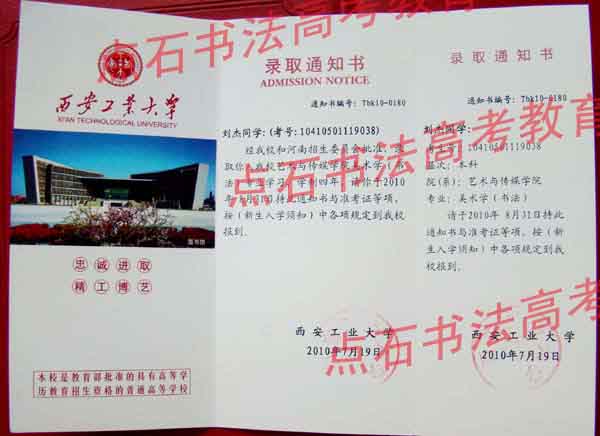 西安工业大学
XI'AN TECHNOLOGICAL UNIVERSITY
图书馆
忠诚进取
精工博艺
本校是教育部批准的具有高等学
历教育招生资格的普通高等学校
录取通知书
ADMISSION NOTICE
通知书编号：Tbk10-0180
刘杰同学：(考号：10410501119038)
经我校和河南招生委员会批准，录
取你入我校艺术与传媒学院美术学（书
法）专业学习，学制四年，请你于2010
年8月31日持此通知书与准考证等项，
按《新生入学须知》中各项规定到我校
报到。
西安工业大学
2010年7月19日
录取通知书
通知书编号：Tbk10-0180
刘杰同学：
考生号：10410501119038
层次：本科
院(系)：艺术与传媒学院
专业：美术学（书法）
请于2010年 8月31日持此
通知书与准考证等项，按《新
生入学须知》中各项规定到我
校报到。
西安工业大学
2010年7月19日
点石书法高考教育
点石书法高考教育
点石书法高考